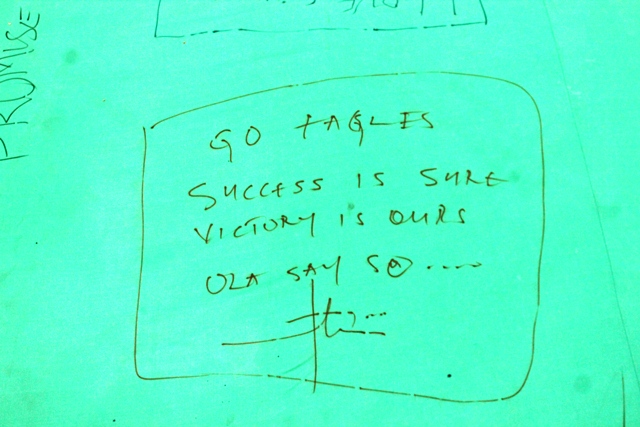 PROMISE
GO EAGLES
SUCCESS IS SURE
VICTORY IS OURS
OLA SAY SO .....